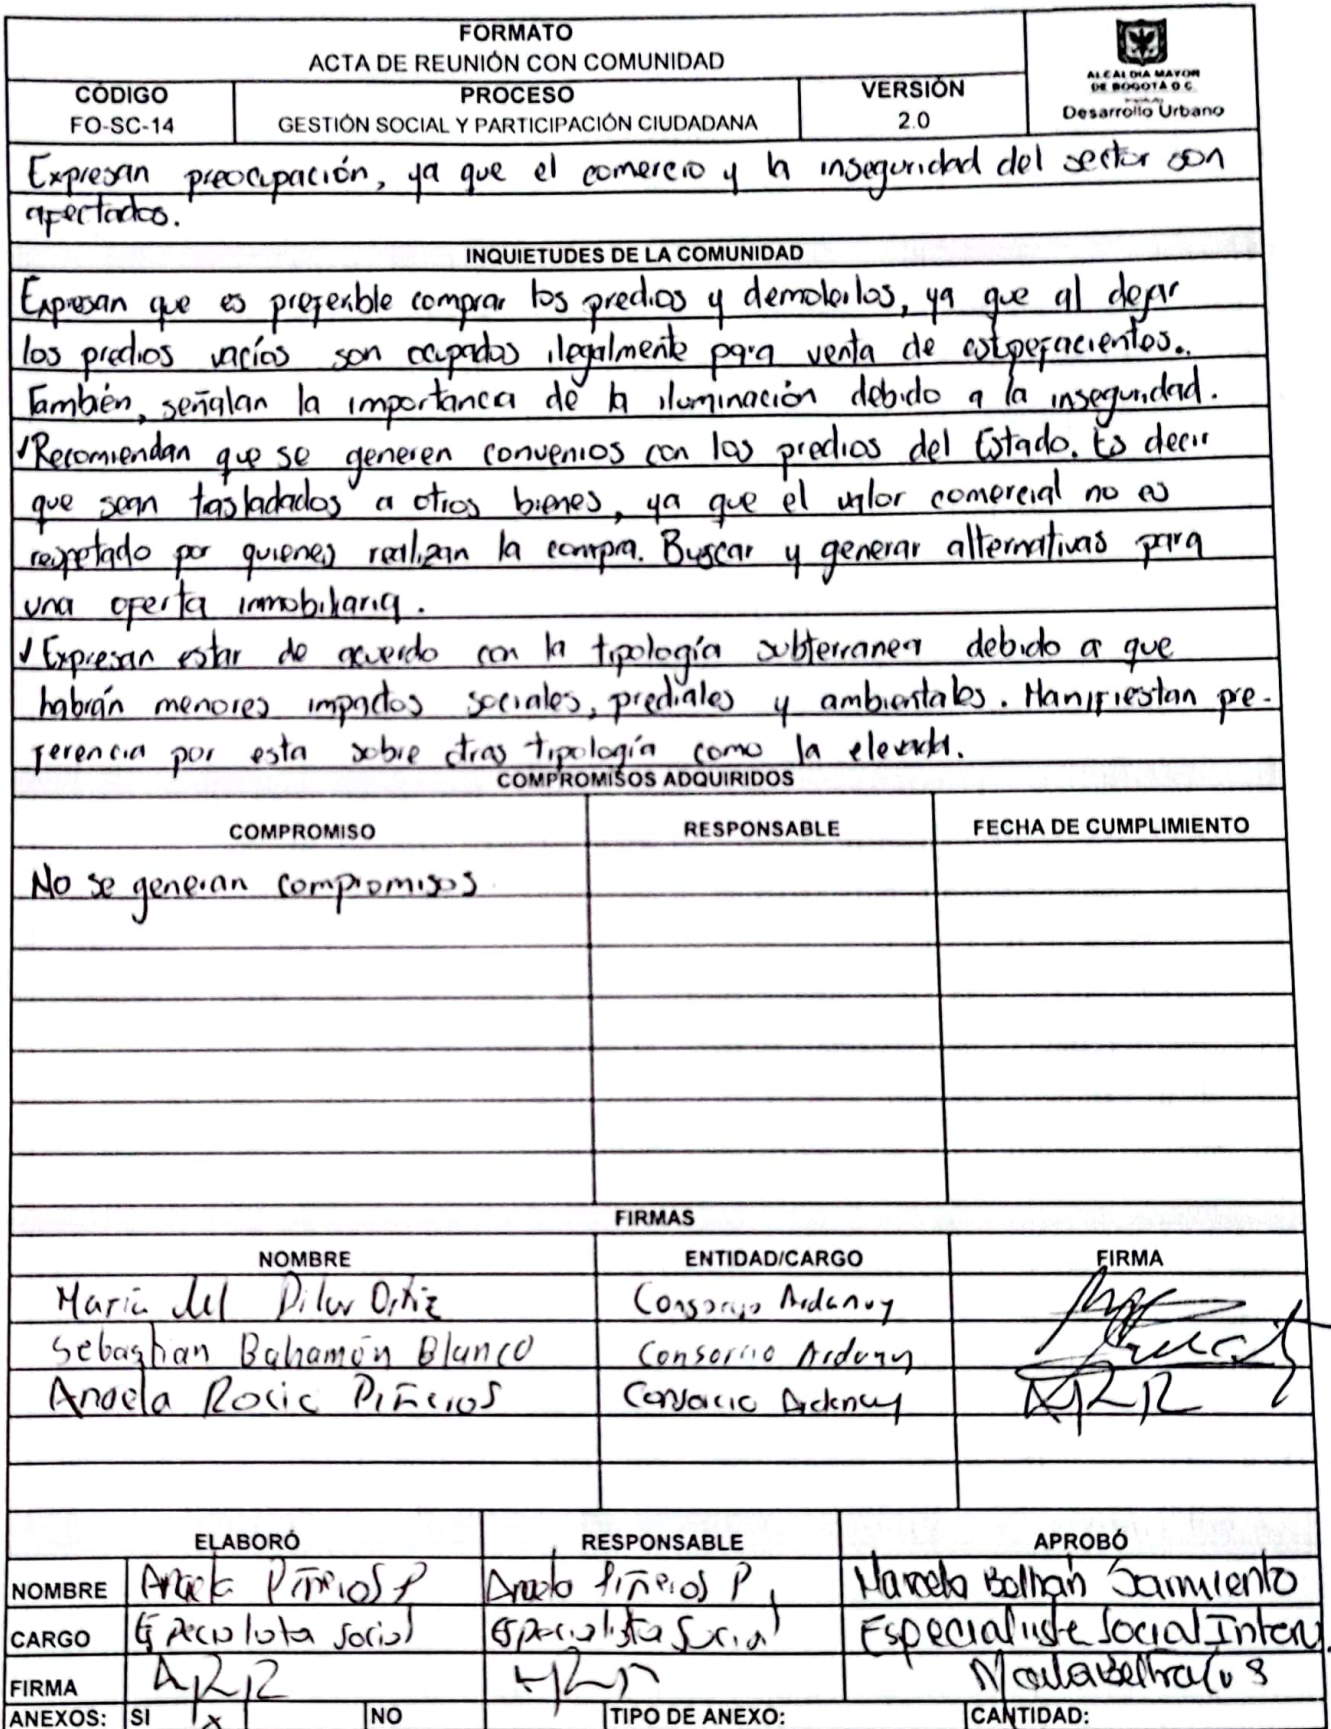 FORMATO
ACTA DE REUNIÓN CON COMUNIDAD
ALCALDIA MAYOR
DE BOGOTÁ D.C.
Desarrollo Urbano
CÓDIGO PROCESO VERSIÓN
FO-SC-14 GESTIÓN SOCIAL Y PARTICIPACIÓN CIUDADANA 2.0
Expresan preocupación, ya que el comercio y la inseguridad del sector son
afectados.
INQUIETUDES DE LA COMUNIDAD
Expresan que es preferible comprar los predios y demolerlos, ya que al dejar
los predios vacíos son ocupados ilegalmente para venta de estupefacientes.
También, señalan la importanca de la iluminación debido a la inseguridad.
✓Recomiendan que se generen convenios con los predios del Estado. Es decir
que sean trasladados a otros bienes, ya que el valor comercial no es
respetado por quienes realizan la compra. Buscar y generar alternativas para
una oferta inmobiliaria.
✓Expresan estar de acuerdo con la tipología subterranea debido a que
habrán menores impactos sociales, prediales y ambientales. Manifiestan pre-
ferencia por esta sobre otras tipología como la elevada.
COMPROMISOS ADQUIRIDOS
COMPROMISO RESPONSABLE FECHA DE CUMPLIMIENTO
No se generan compromisos
FIRMAS
NOMBRE ENTIDAD/CARGO FIRMA
Maria del Pilar Ortiz Consorcio Ardanuy
Sebastian Bahamón Blanco Consorcio Ardanuy
Angela Rocio Piñeros Consorcio Ardanuy
ELABORÓ RESPONSABLE APROBÓ
NOMBRE Angela Piñeros P Angela Piñeros P. Marcela Beltrán Sarmiento
CARGO Especialista Social Especialista Social Especialista Social Interv.
FIRMA
ANEXOS: SI x NO TIPO DE ANEXO: CANTIDAD: